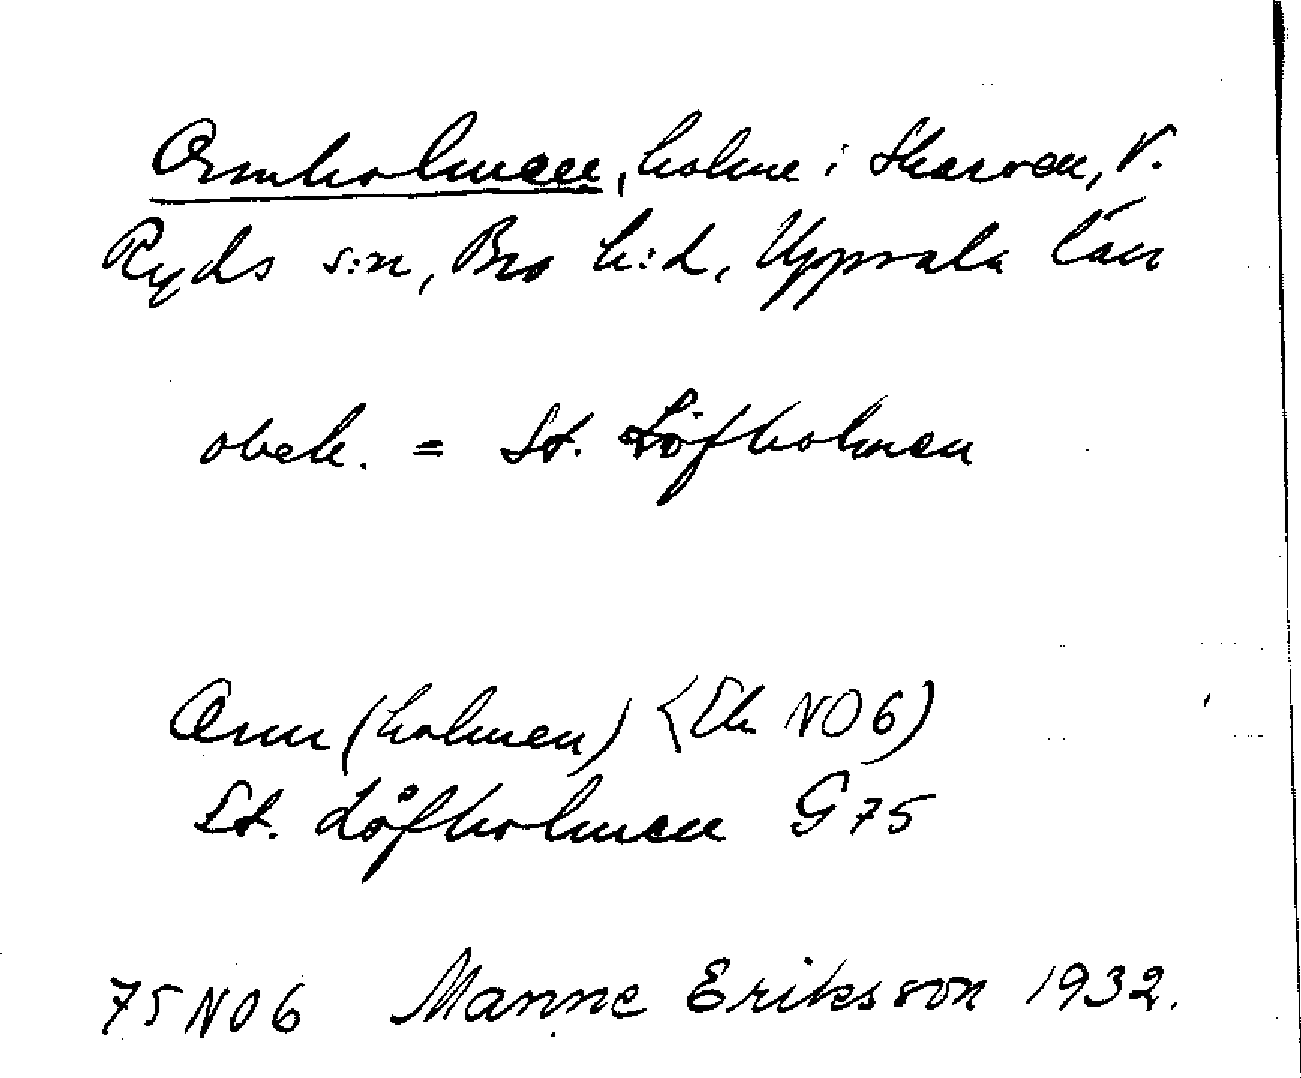 Ormholmen, holme i Skarven, V.
Ryds s:n, Bro h:d, Uppsala län
obek. = St. Löfholmen
Orm (holmen) (Ek NO6)
St. Löfholmen G75
75 NO6 Manne Eriksson 1932.